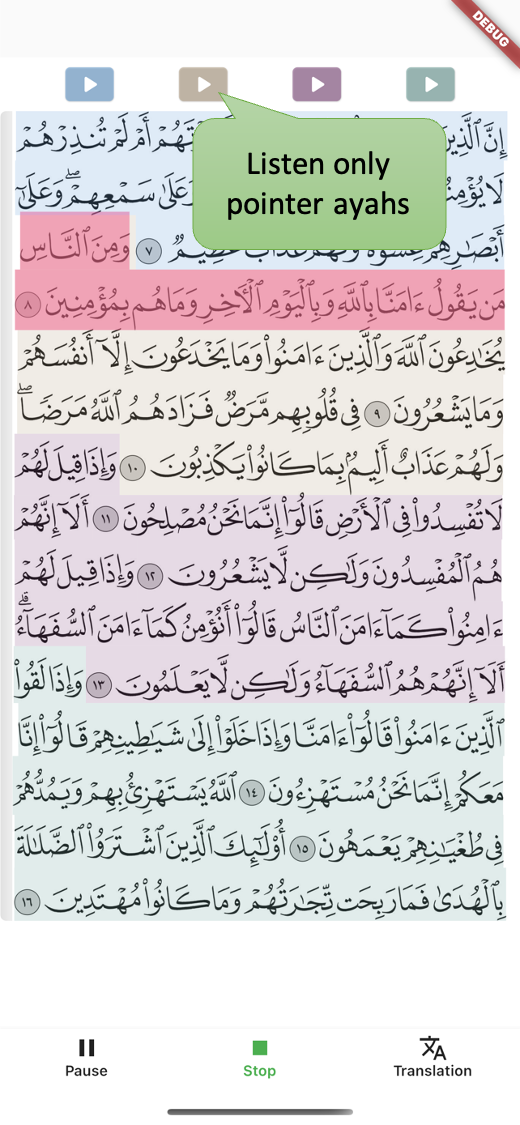 DEBUG
Listen only
pointer ayahs
إِنَّ ٱلَّذِينَ أَمْ لَمْ تُنذِرْهُمْ
لَا وَعَلَىٰ سَمْعِهِمْ ۖ وَعَلَىٰٓ
أَبْصَٰرِهِمْ ٧ وَمِنَ ٱلنَّاسِ
مَن يَقُولُ ءَامَنَّا بِٱللَّهِ وَبِٱلْيَوْمِ ٱلْأَخِرِ وَمَا هُم بِمُؤْمِنِينَ ٨
يُخَٰدِعُونَ ٱللَّهَ وَٱلَّذِينَ ءَامَنُوا۟ وَمَا يَخْدَعُونَ إِلَّآ أَنفُسَهُمْ
وَمَا يَشْعُرُونَ ٩ فِى قُلُوبِهِم مَّرَضٌ فَزَادَهُمُ ٱللَّهُ مَرَضًا ۖ
وَلَهُمْ عَذَابٌ أَلِيمٌۢ بِمَا كَانُوا۟ يَكْذِبُونَ ١٠ وَإِذَا قِيلَ لَهُمْ
لَا تُفْسِدُوا۟ فِى ٱلْأَرْضِ قَالُوٓا۟ إِنَّمَا نَحْنُ مُصْلِحُونَ ١١ أَلَآ إِنَّهُمْ
هُمُ ٱلْمُفْسِدُونَ وَلَٰكِن لَّا يَشْعُرُونَ ١٢ وَإِذَا قِيلَ لَهُمْ
ءَامِنُوا۟ كَمَآ ءَامَنَ ٱلنَّاسُ قَالُوٓا۟ أَنُؤْمِنُ كَمَآ ءَامَنَ ٱلسُّفَهَآءُ ۗ
أَلَآ إِنَّهُمْ هُمُ ٱلسُّفَهَآءُ وَلَٰكِن لَّا يَعْلَمُونَ ١٣ وَإِذَا لَقُوا۟
ٱلَّذِينَ ءَامَنُوا۟ قَالُوٓا۟ ءَامَنَّا وَإِذَا خَلَوْا۟ إِلَىٰ شَيَٰطِينِهِمْ قَالُوٓا۟ إِنَّا
مَعَكُمْ إِنَّمَا نَحْنُ مُسْتَهْزِءُونَ ١٤ ٱللَّهُ يَسْتَهْزِئُ بِهِمْ وَيَمُدُّهُمْ
فِى طُغْيَٰنِهِمْ يَعْمَهُونَ ١٥ أُو۟لَٰٓئِكَ ٱلَّذِينَ ٱشْتَرَوُا۟ ٱلضَّلَٰلَةَ
بِٱلْهُدَىٰ فَمَا رَبِحَت تِّجَٰرَتُهُمْ وَمَا كَانُوا۟ مُهْتَدِينَ ١٦
Pause
Stop
Translation